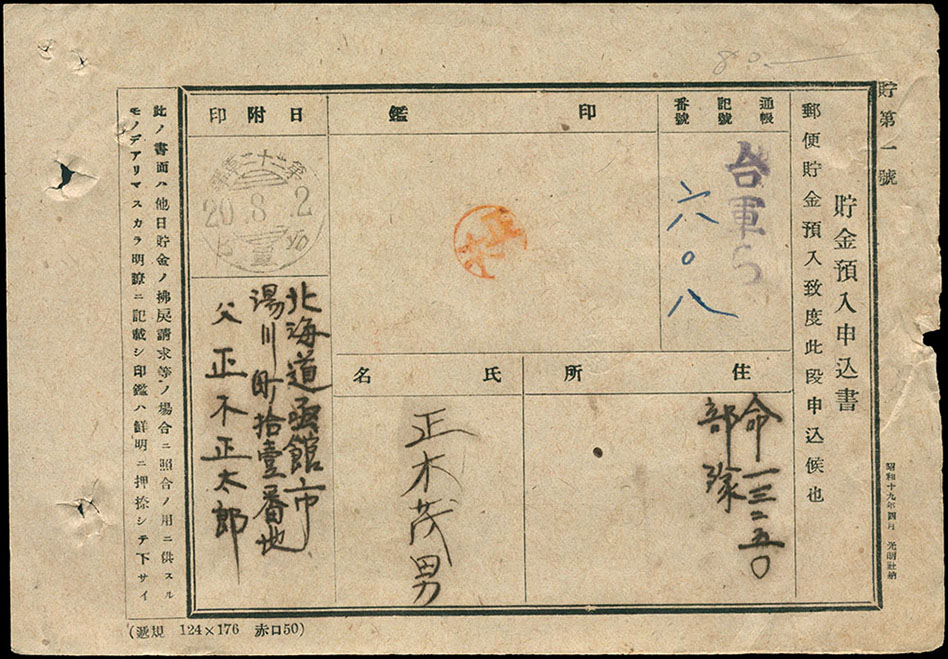 貯第一號
貯金預入申込書
郵便貯金預入致度此段申込候也
昭和十九年四月 光明社納
通帳
記號
番號
台軍ら
六〇八
印鑑
正木
住所
命一三二五〇
部隊
氏名
正木茂男
日附印
20.8.2
北海道函館市
湯川町拾壹番地
父正木正太郎
此ノ書面ハ他日貯金ノ拂戻請求等ノ場合ニ照合ノ用ニ供スル
モノデアリマスカラ明瞭ニ記載シ印鑑ハ鮮明ニ押捺シテ下サイ
(遞規 124×176 赤口50)